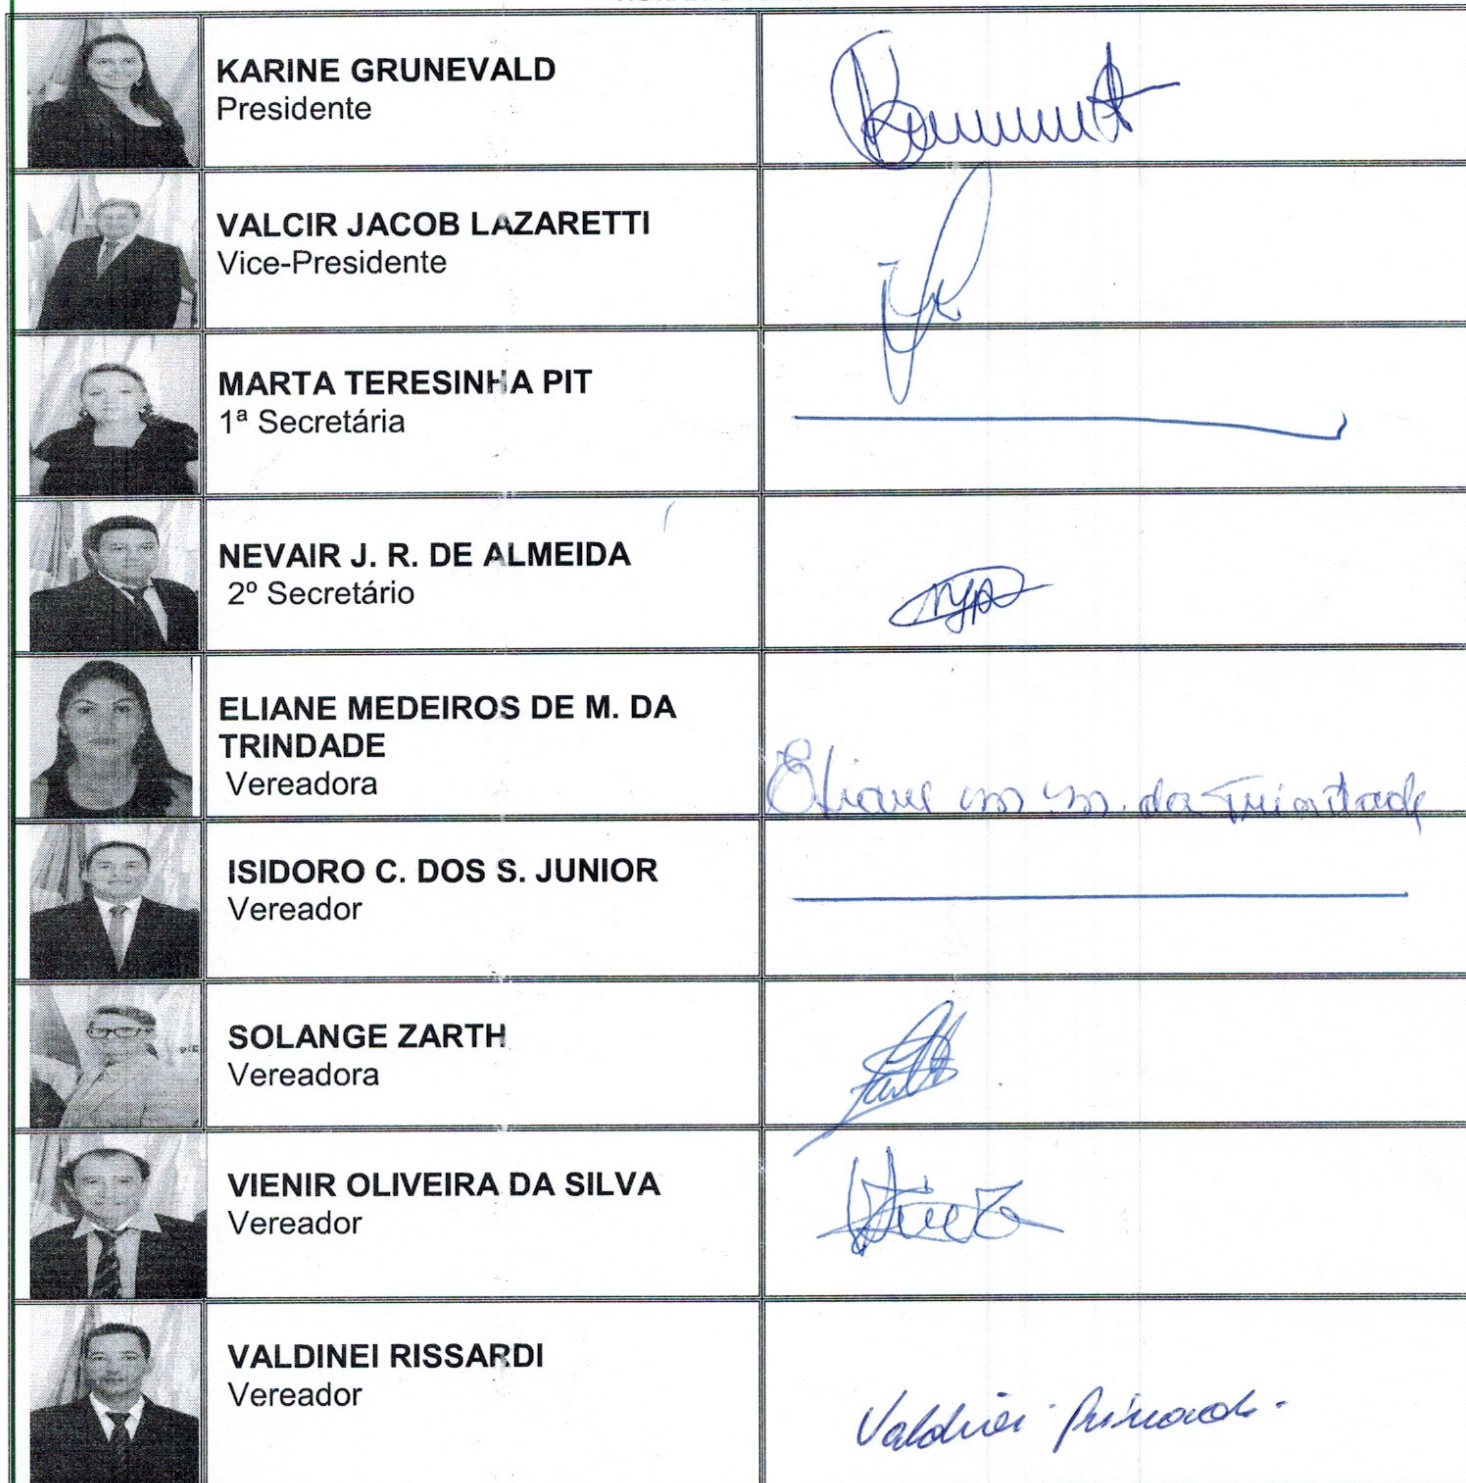 KARINE GRUNEVALD
Presidente
VALCIR JACOB LAZARETTI
Vice-Presidente
MARTA TERESINHA PIT
1ª Secretária
NEVAIR J. R. DE ALMEIDA
2º Secretário
ELIANE MEDEIROS DE M. DA
TRINDADE
Vereadora
Eliane m m. da Trindade
ISIDORO C. DOS S. JUNIOR
Vereador
SOLANGE ZARTH
Vereadora
VIENIR OLIVEIRA DA SILVA
Vereador
VALDINEI RISSARDI
Vereador
Valdinei